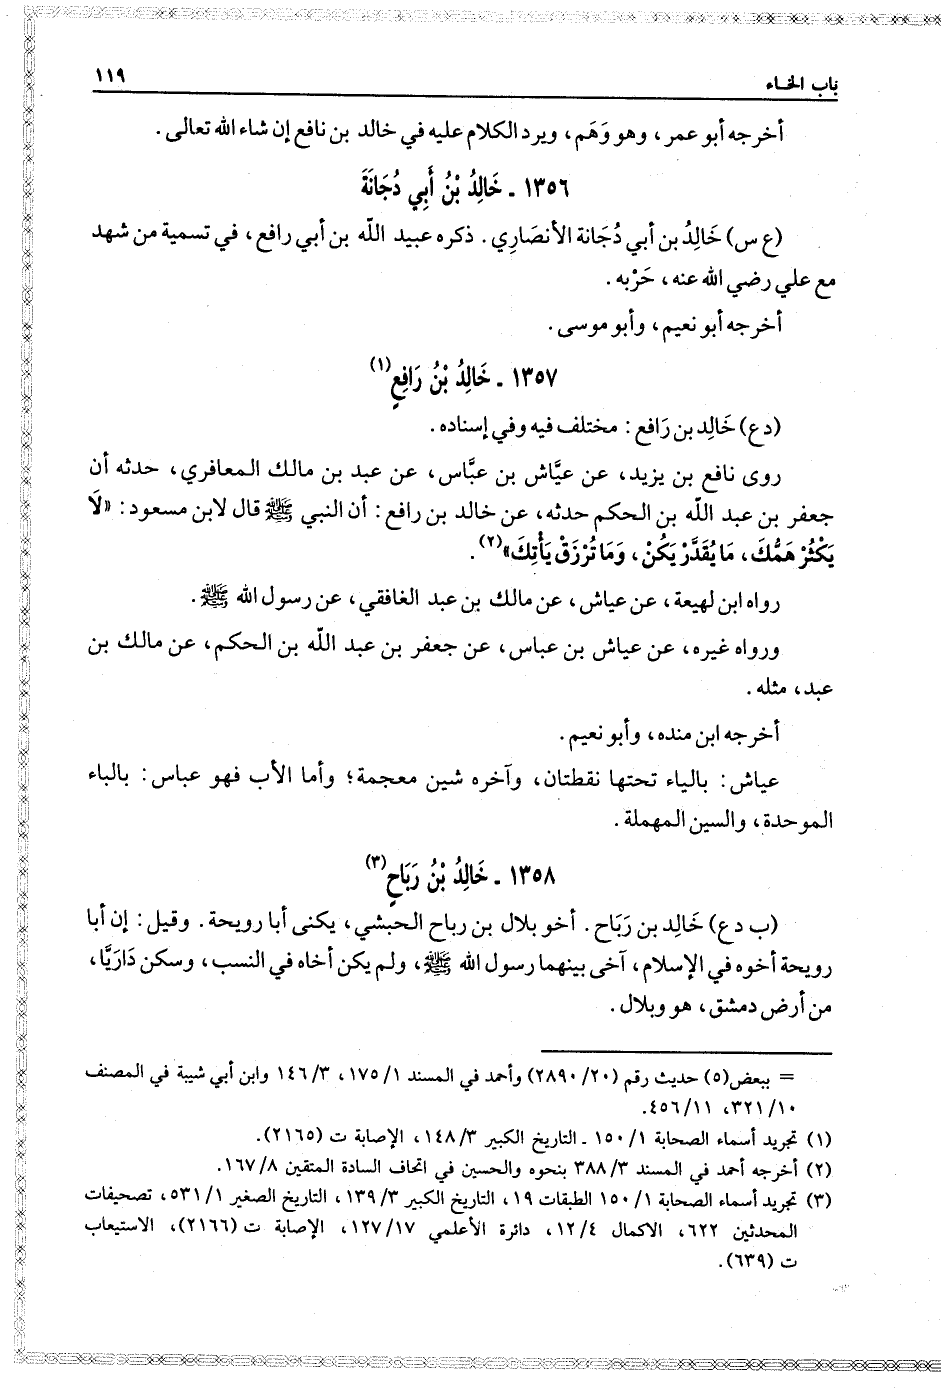 باب الخاء
١١٩
أخرجه أبو عمر، وهو وَهَم، ويرد الكلام عليه في خالد بن نافع إن شاء الله تعالى.
١٣٥٦ ـ خَالِدُ بْنُ أَبِي دُجَانَةَ
(ع س) خَالِدُ بن أبي دُجَانة الأنصَارِي. ذكره عبيد اللّه بن أبي رافع، في تسمية من شهد
مع علي رضي الله عنه، حَرْبه.
أخرجه أبو نعيم، وأبو موسى.
١٣٥٧ ـ خَالِدُ بْنُ رَافِعٍ(١)
(د ع) خَالِد بن رَافع: مختلف فيه وفي إسناده.
روى نافع بن يزيد، عن عيَّاش بن عبَّاس، عن عبد بن مالك المعافري، حدثه أن
جعفر بن عبد اللّه بن الحكم حدثه، عن خالد بن رافع: أن النبي ﷺ قال لابن مسعود: «لَا
يَكْثُرْ هَمُّكَ، مَا يُقَدَّرْ يَكُنْ، وَمَا تُرْزَقْ يَأْتِكَ»(٢).
رواه ابن لهيعة، عن عياش، عن مالك بن عبد الغافقي، عن رسول الله ﷺ.
ورواه غيره، عن عياش بن عباس، عن جعفر بن عبد اللّه بن الحكم، عن مالك بن
عبد، مثله.
أخرجه ابن منده، وأبو نعيم.
عياش: بالياء تحتها نقطتان، وآخره شين معجمة؛ وأما الأب فهو عباس: بالباء
الموحدة، والسين المهملة.
١٣٥٨ ـ خَالِدُ بْنُ رَبَاحٍ(٣)
(ب د ع) خَالِد بن رَبَاح. أخو بلال بن رباح الحبشي، يكنى أبا رويحة. وقيل: إن أبا
رويحة أخوه في الإسلام، آخى بينهما رسول الله ﷺ، ولم يكن أخاه في النسب، وسكن دَارَيَّا،
من أرض دمشق، هو وبلال.
= ببعض(٥) حديث رقم (٢٨٩٠/٢٠) وأحمد في المسند ١/ ١٧٥، ٣/ ١٤٦ وابن أبي شيبة في المصنف
١٠/ ٣٢١، ١١/ ٤٥٦.
(١) تجريد أسماء الصحابة ١/ ١٥٠ ـ التاريخ الكبير ٣/ ١٤٨، الإصابة ت (٢١٦٥).
(٢) أخرجه أحمد في المسند ٣/ ٣٨٨ بنحوه والحسين في اتحاف السادة المتقين ٨/ ١٦٧.
(٣) تجريد أسماء الصحابة ١/ ١٥٠ الطبقات ١٩، التاريخ الكبير ٣/ ١٣٩، التاريخ الصغير ١/ ٥٣١، تصحيفات
المحدثين ٦٢٢، الاكمال ٤/ ١٢، دائرة الأعلمي ١٧/ ١٢٧، الإصابة ت (٢١٦٦)، الاستيعاب
ت (٦٣٩).